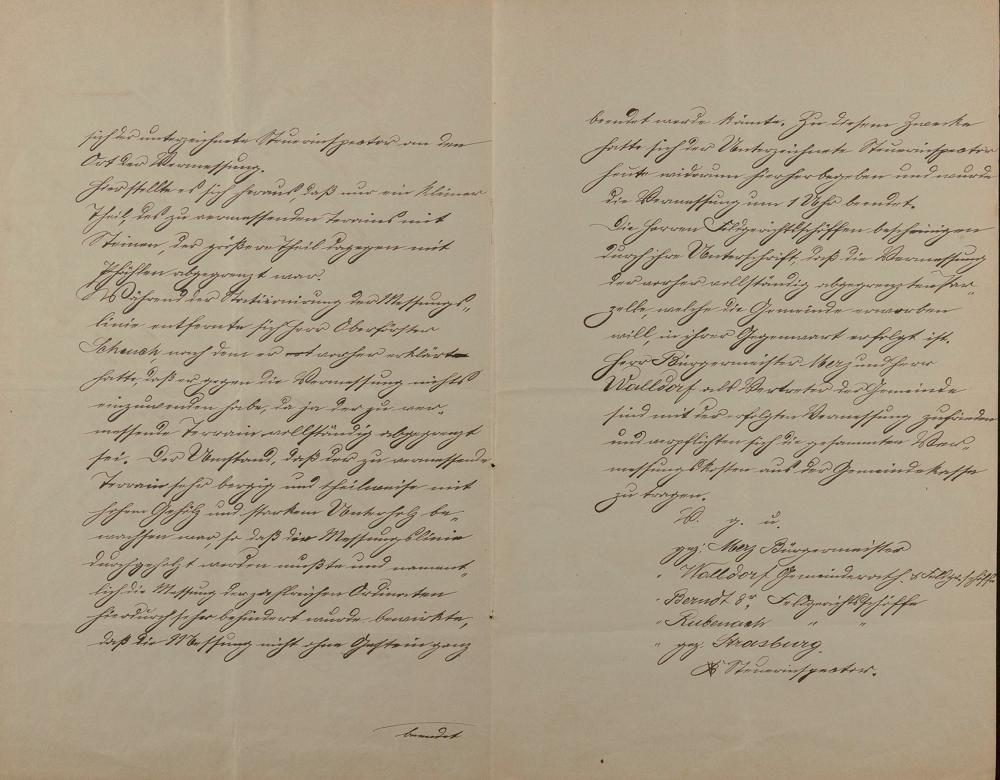 sich der unterzeichnete Steuerinspector an den
Ort der Vermessung.
Hier stellte es sich heraus, daß nur ein kleiner
Theil des zu vermessenden Terrains mit
Steinen, der größere Theil dagegen mit
Pfählen abgegrenzt war.
Während der Stationirung der Messungs-
linie entfernte sich Herr Oberförster
Schenck, nach dem er vorher erklärt
hatte, daß er gegen die Vermessung nichts
einzuwenden habe, da ja der zu ver-
messende Terrain vollständig abgegrenzt
sei. Der Umstand, daß der zu vermessende
Terrain sehr bergig und theilweise mit
hohem Gehölz und starkem Unterholz be-
wachsen war, so daß die Messungslinie
durchgeholzt werden mußte und nament-
lich die Messung der zahlreichen Ordinaten
hierdurch sehr behindert wurde, bewirkte,
daß die Messung nicht ohne ganz
beendet
beendet werde könnte. Zu diesem Zwecke
hatte sich der Unterzeichnete Steuerinspector
heute widerum hierher begeben und wurde
die Vermessung um 1 Uhr beendet.
Die Herren Feldgerichtsschöffen bescheinigen
durch ihre Unterschrift, daß die Vermessung
der vorher vollständig abgegrenzten Par-
zelle welche die Gemeinde erworben
will, in ihrer Gegenwart erfolgt ist.
Herr Bürgermeister Merz und Herr
Walldorf als Vertreter der Gemeinde
sind mit der erfolgten Vermessung zufrieden
und verpflichten sich die gesammten Ver-
messungskosten aus der Gemeindekasse
zu tragen.
V. g. u.
gez. Merz Bürgermeister
" Walldorf Gemeinderath &
" Berndt 8r Feldgerichtsschöffe
" Rubenach " "
" gez. Strasburg.
Steuerinspector.